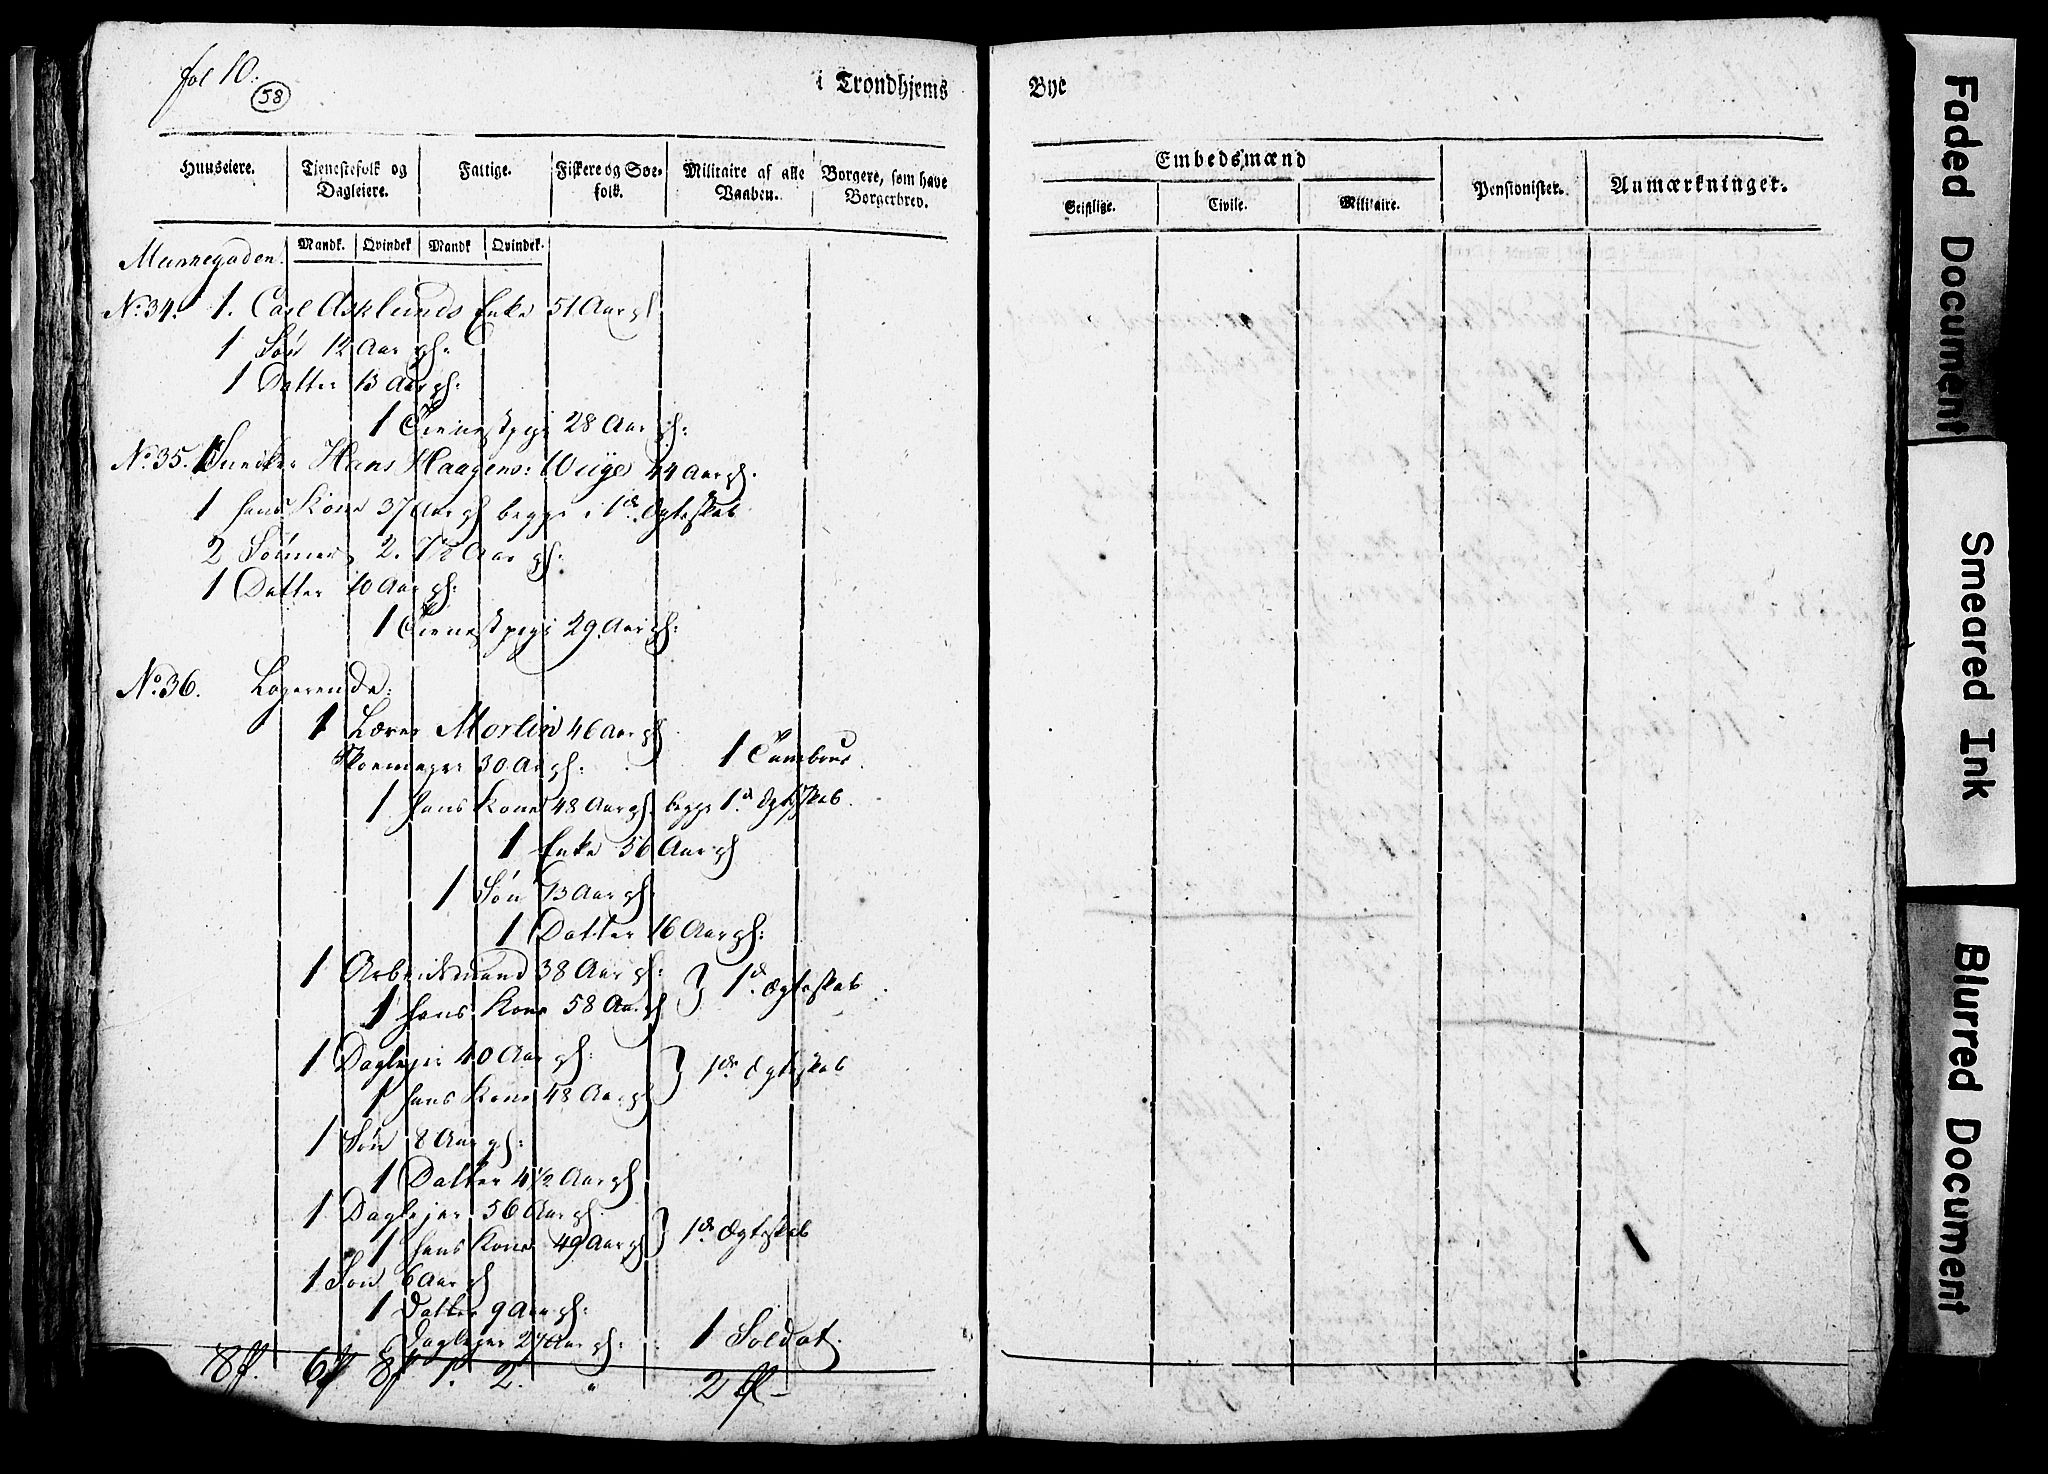 fol 10.
58
i Trondhjems Bye
Huuseiere.
Tjenestefolk og Dagleiere.
Fattige.
Fiskere og Søefolk.
Militaire af alle Vaaben.
Borgere, som have Borgerbrev.
Embedsmænd
Geistlige.
Civile.
Militaire.
Pensionister.
Anmærkninger.
Mandk. Qvindek Mandk Qvindek.
Munkegaden.
No. 34. 1. Carl Asklunds Enke 51 Aar gl
1 Søn 12 Aar gl:
1 Datter 13 Aar gl:
1 Tienestpige 28 Aar gl:
No. 35. 1 Snedker Hans Haagens: Wiige 44 Aar gl.
1 hans Kone 37 Aar gl begge i 1de Ægteskab
2 Sønner 2. 7½ Aar gl:
1 Datter 10 Aar gl:
1 Tienestpige 29 Aar gl:
No. 36. Logerende:
1 Lærer Morlin 46 Aar gl
Skoemager 30 Aar gl: 1 Tambour.
1 hans Kone 48 Aar gl. begge 1d. Ægteskab.
1 Enke 56 Aar gl
1 Søn 13 Aar gl.
1 Datter 16 Aar gl:
1 Arbeidsmand 38 Aar gl: 1d. Ægteskab
1 hans Kone 58 Aar gl
1 Daglejer 40 Aar gl: 1de Ægteskab
1 hans Kone 48 Aar gl
1 Søn 8 Aar gl:
1 Datter 4½ Aar gl
1 Daglejer 56 Aar gl. 1de Ægteskab
1 hans Kone 49 Aar gl
1 Søn 6 Aar gl
1 Datter 9 Aar gl:
Daglejer 27 Aar gl: 1 Soldat.
8 6 8 1. 2. " 2
Faded Document
Smeared Ink
Blurred Document